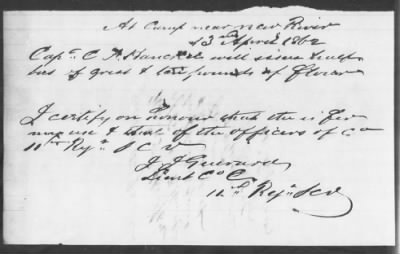 At Camp near New River
13th April 1862
Capt. C. A. Hanckel will issue
lbs of and two pounds of flour
I certify on honour that the is for
my use & that of the officers of Co
11th Regt S C V
J J Guerard
Lieut Co C
11th Regt SCV